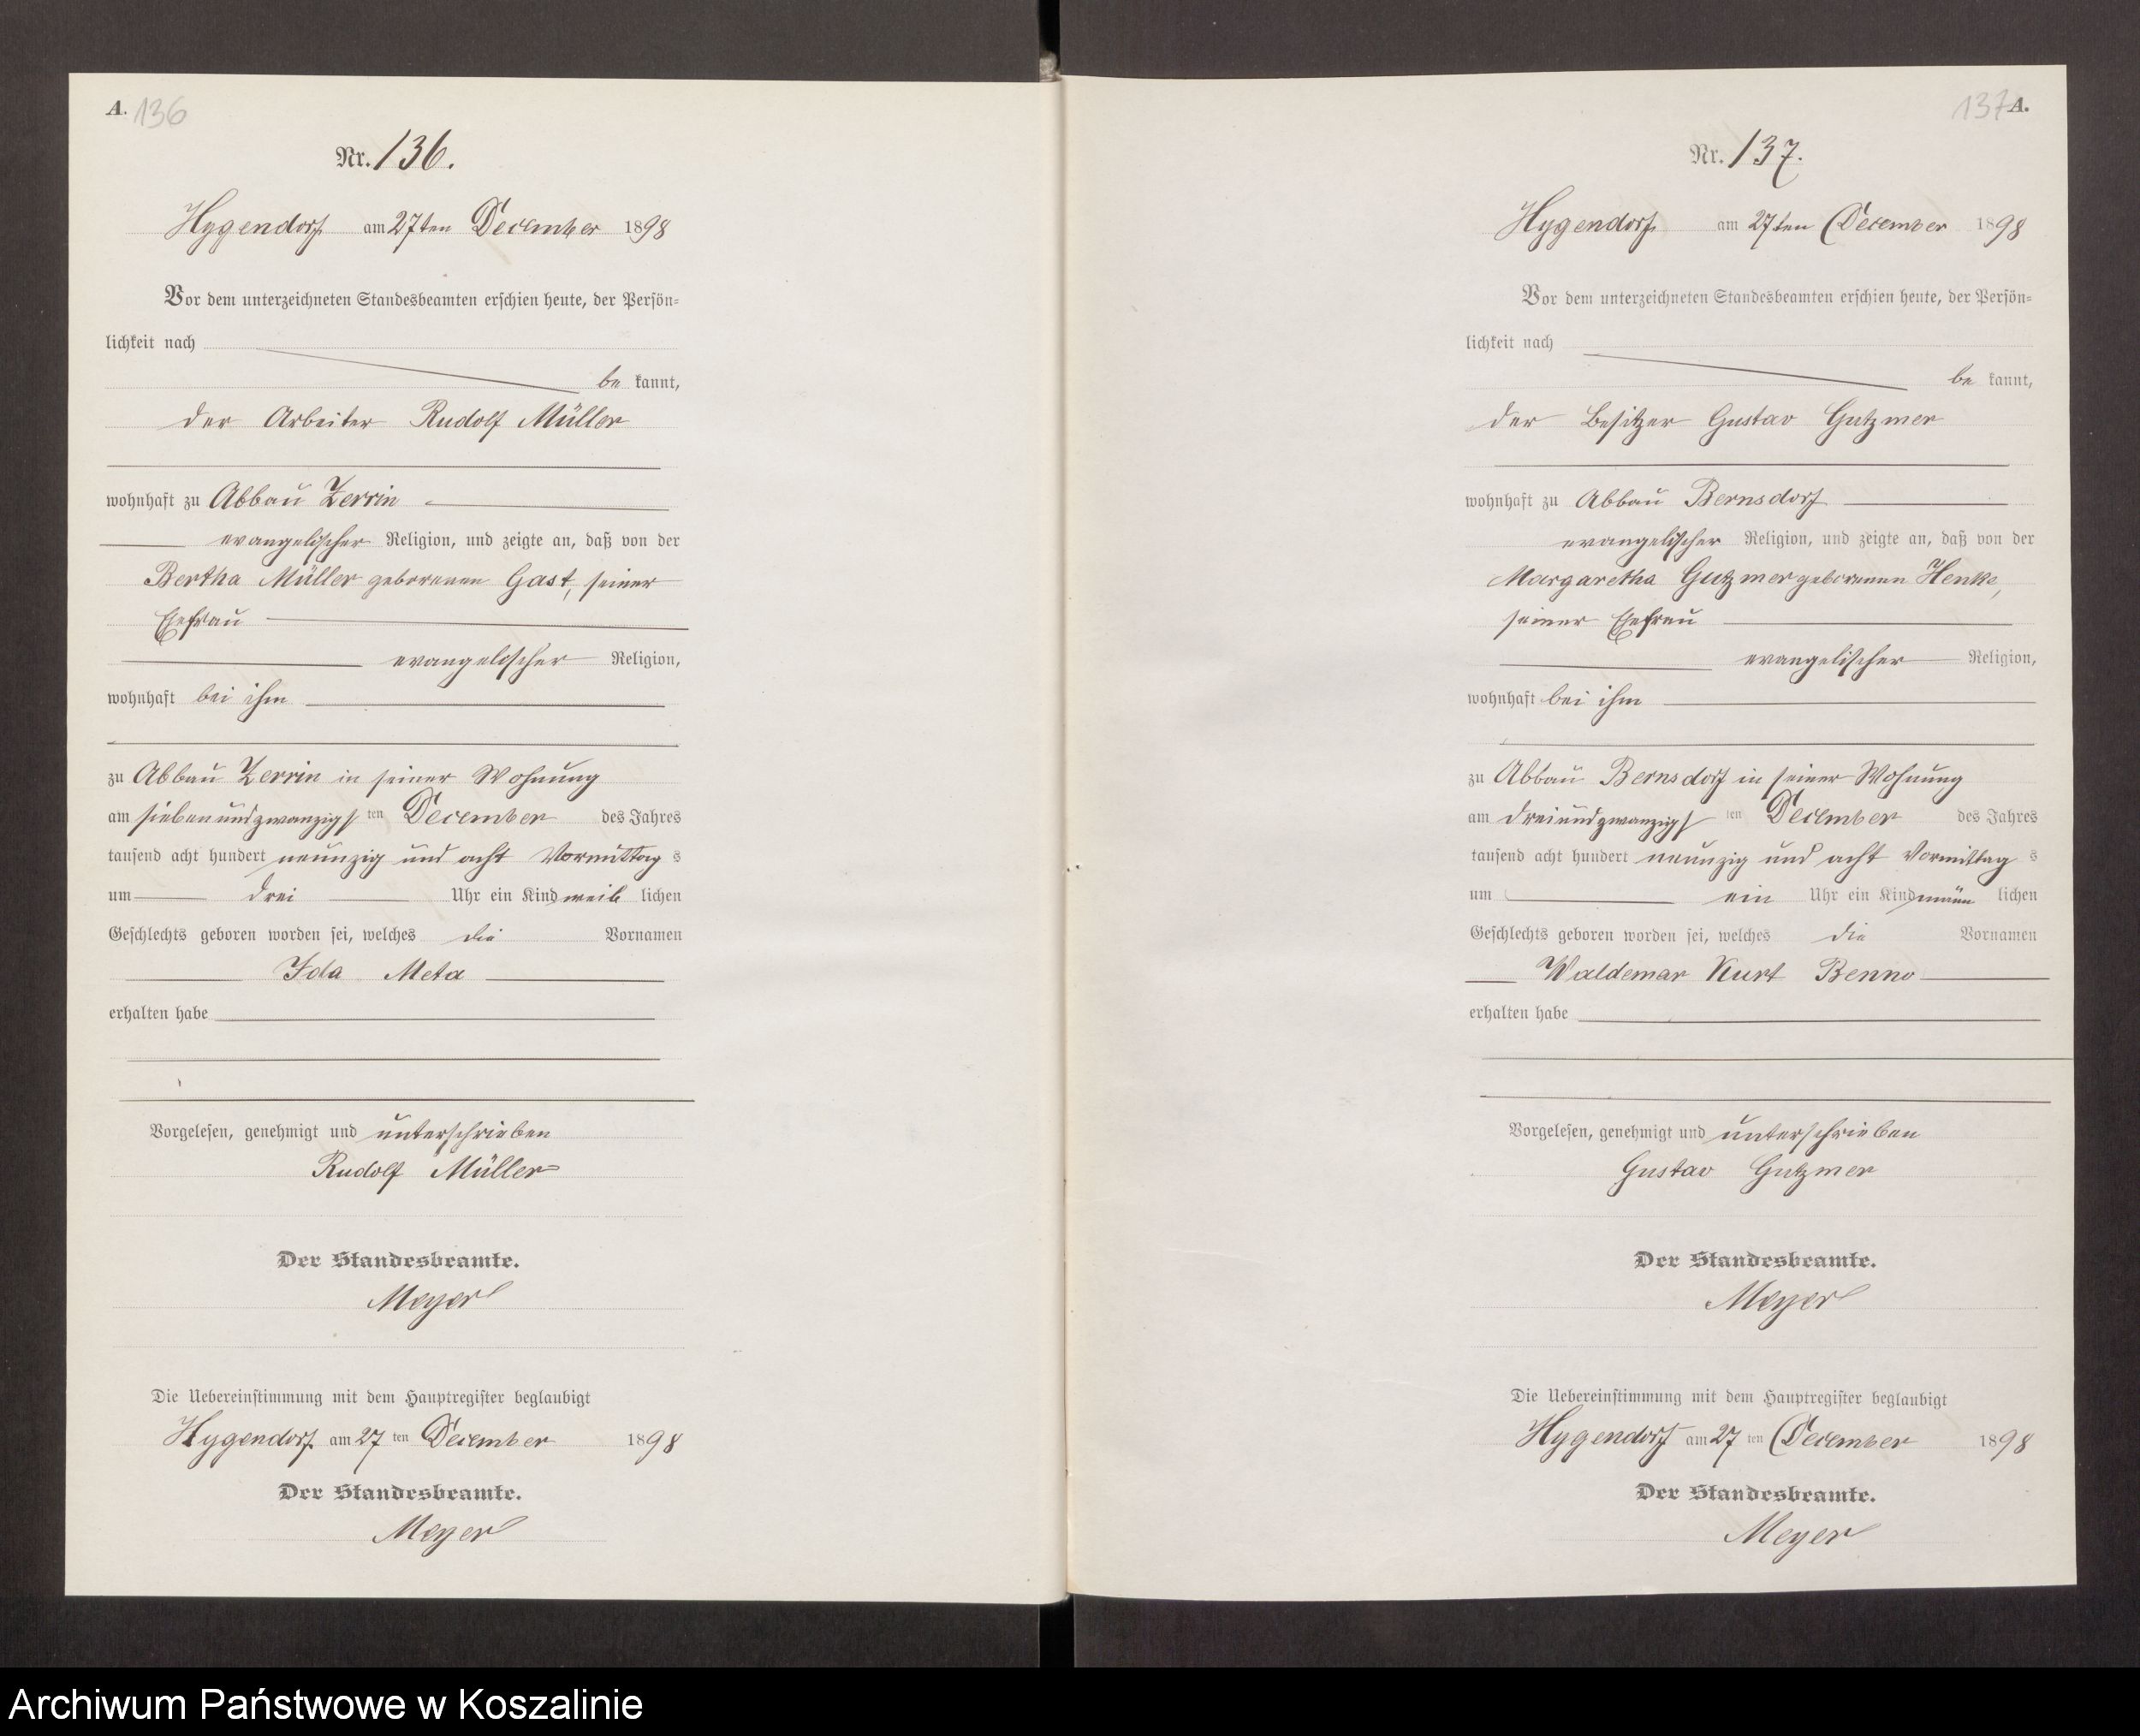 A. 136
Nr. 136.
Hygendorf am 27ten December 1898
Vor dem unterzeichneten Standesbeamten erschien heute, der Persön-
lichkeit nach
be kannt,
der Arbeiter Rudolf Müller
wohnhaft zu Abbau Zerrin
evangelischer Religion, und zeigte an, daß von der
Bertha Müller geborenen Gast, seiner
Ehefrau
evangelischer Religion,
wohnhaft bei ihm
zu Abbau Zerrin in seiner Wohnung
am siebenundzwanzigsten December des Jahres
tausend acht hundert neunzig und acht Vormittags
um drei Uhr ein Kind weib lichen
Geschlechts geboren worden sei, welches die Vornamen
Ida Meta
erhalten habe
Vorgelesen, genehmigt und unterschrieben
Rudolf Müller
Der Standesbeamte.
Meyer
Die Uebereinstimmung mit dem Hauptregister beglaubigt
Hygendorf am 27 ten December 1898
Der Standesbeamte.
Meyer
137 A.
Nr. 137.
Hygendorf am 27ten December 1898
Vor dem unterzeichneten Standesbeamten erschien heute, der Persön-
lichkeit nach
be kannt,
der Besitzer Gustav Gutzmer
wohnhaft zu Abbau Bernsdorf
evangelischer Religion, und zeigte an, daß von der
Margaretha Gutzmer geborenen Henke,
seiner Ehefrau
evangelischer Religion,
wohnhaft bei ihm
zu Abbau Bernsdorf in seiner Wohnung
am dreiundzwanzigsten December des Jahres
tausend acht hundert neunzig und acht Vormittags
um ein Uhr ein Kind männ lichen
Geschlechts geboren worden sei, welches die Vornamen
Waldemar Kurt Benno
erhalten habe
Vorgelesen, genehmigt und unterschrieben
Gustav Gutzmer
Der Standesbeamte.
Meyer
Die Uebereinstimmung mit dem Hauptregister beglaubigt
Hygendorf am 27 ten December 1898
Der Standesbeamte.
Meyer
Archiwum Państwowe w Koszalinie